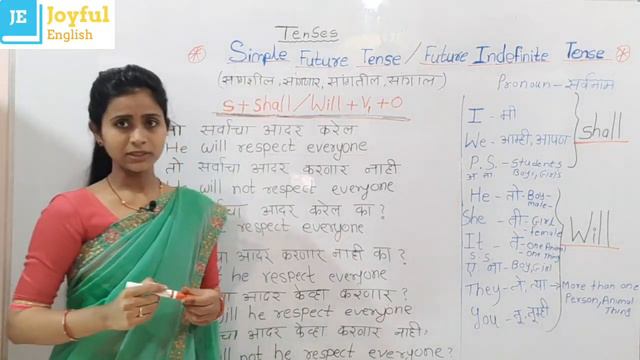 JE Joyful
English
Tenses
* Simple Future Tense / Future Indefinite Tense *
S + Shall / Will + V₁ + O
तो सर्वांचा आदर करेल
He will respect everyone
तो सर्वांचा आदर करणार नाही
will not respect everyone
आदर करेल का?
respect everyone
आदर करणार नाही का?
he respect everyone
आदर केव्हा करणार?
he respect everyone
आदर केव्हा करणार नाही?
not he respect everyone?
Pronoun - सर्वनाम
I - मी
We - आम्ही, आपण
P.S. - Students
Boys, Girls
Shall
He - तो - Boy
male
She - ती - Girl
female
It - ते - One Animal
One thing
S.S.
ए. ना - Boy, Girl
They - ते, त्या → More than one
Person, Animal
Thing
You - तू, तुम्ही
Will